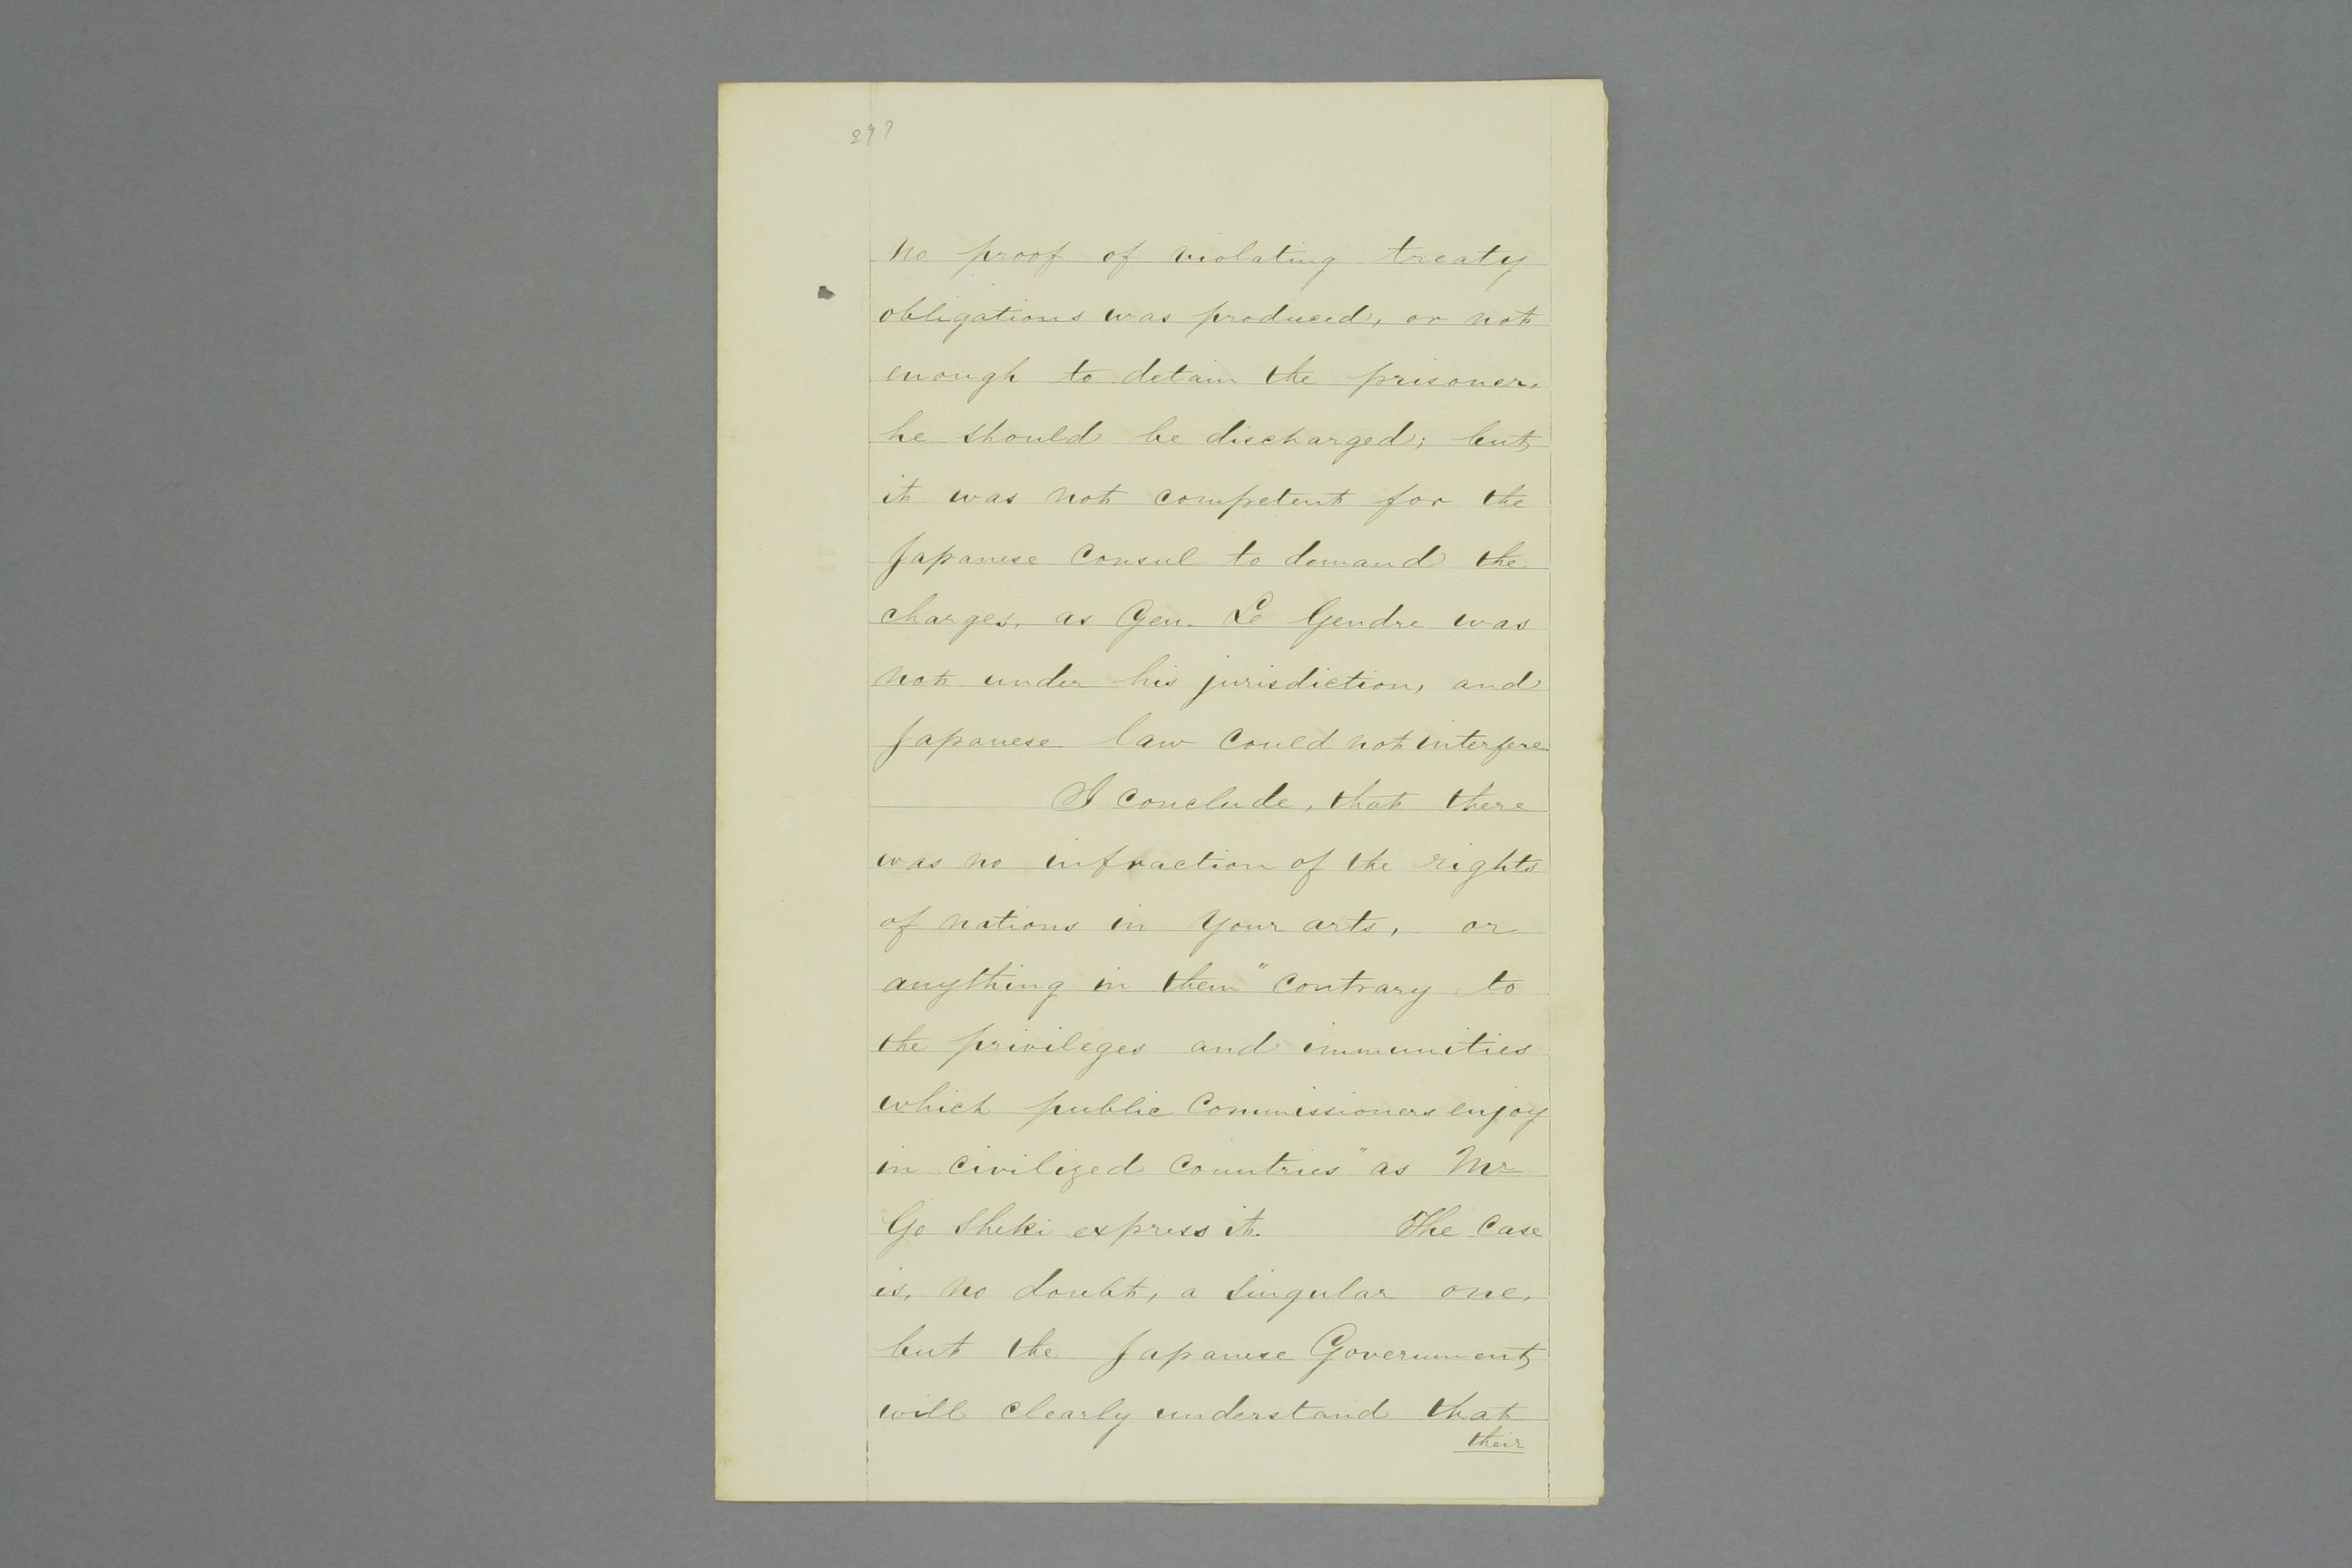 297
no proof of violating treaty
obligations was produced, or not
enough to detain the prisoner,
he should be discharged; but
it was not competent for the
Japanese Consul to demand the
charges, as Gen. Le Gendre was
not under his jurisdiction, and
Japanese law could not interfere
I conclude, that there
was no infraction of the rights
of nations in your arts, or
anything in them "contrary to
the privileges and immunities
which public Commissioners enjoy
in civilized Countries" as Mr
Go Sheki express it. The Case
is, no doubt, a singular one,
but the Japanese Government
will clearly understand that
their